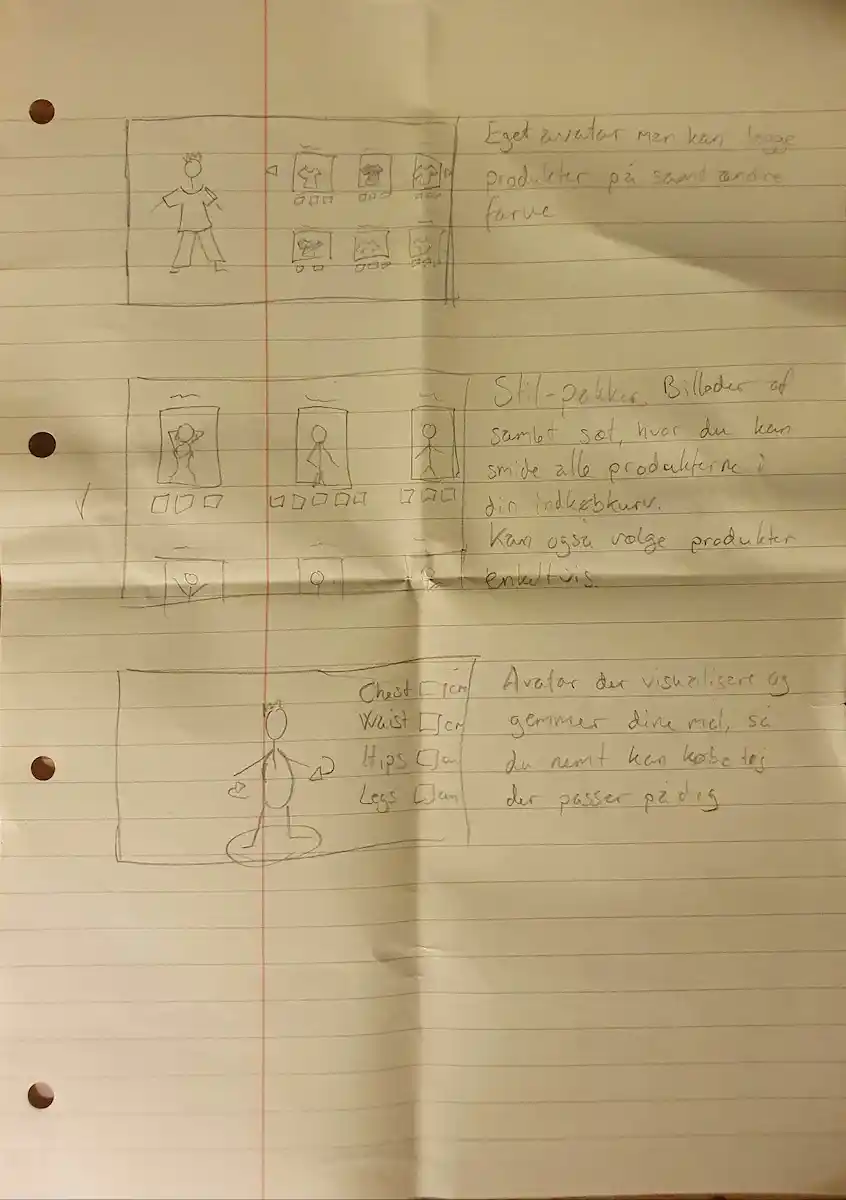 Eget avatar man kan lægge
produkter på samt ændre
farve
Stil-pakker. Billeder af
samlet sæt, hvor du kan
smide alle produkterne i
din indkøbkurv.
Kan også vælge produkter
enkeltvis.
Chest cm
Waist cm
Hips cm
Legs cm
Avatar der visualisere og
gemmer dine mål, så
du nemt kan købe tøj
der passer på dig